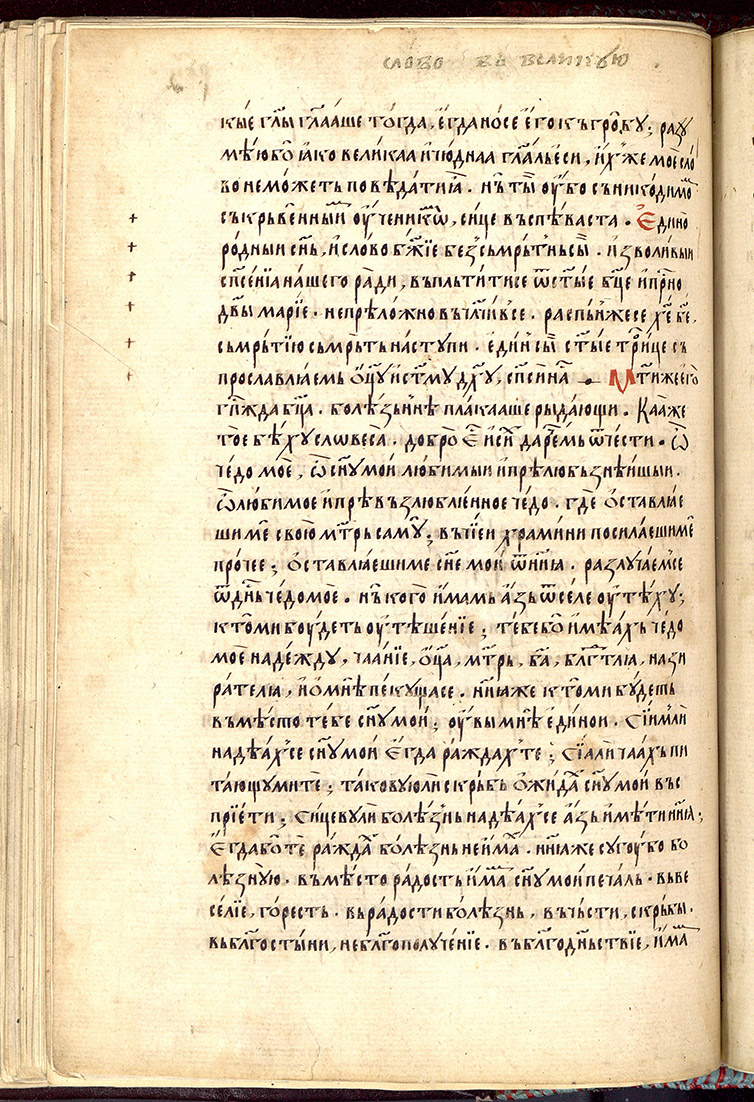 слово во великꙋю
кые гл҃ы гл҃ааше тогда, егда носе его къ гробꙋ; разꙋ
мѣю бо ꙗко великаа и чюднаа гл҃альеси, их же мое сло
во не можеть поведатиꙗ. нь ты ѹбо съ никодимѡ
съкрьвенным ѹченикѡ, сице въспеваста. Едино
родныи сн҃ь, и слово бж҃їе без съмрьтнь сы. изволивыи
сп҃сенїа нашего ради, въплътитисе ѿ ст҃ые бц҃е и прⷭно
дв҃ы марїе. непрѣложно въчл҃чивсе. распныжесе хе бе,
сьмрьтїю сьмрьть настꙋпи. едиⷩ сы ст҃ые трⷪице съ
прославлꙗемь оц҃ꙋ и ст҃мꙋ дх҃ꙋ, сп҃си на — Мт҃и же его
гпⷭжда бц҃а. болѣзьнѣ плакааше рыдающи. Каа же
тое бѣхꙋ словеса. добро е и си дарем ѿчести. Ѽ
чедо мое, ѽ сн҃ꙋ мои любимыи и прѣлюбьзнѣишыи.
ѽ любимое и прѣвъзлюблѥнное чедо. где оставлꙗе
ши ме свою мт҃рь самꙋ; въ чїеи храмини посилаеши ме
прочее; оставлꙗеши ме сн҃е мои ѿнн҃ꙗ. разлꙋчаемсе
ѿ днⷭь чедо мое. нь кого имамь азь ѿселе ѹтѣхꙋ;
кто ми бꙋдеть ѹтѣшенїе; тебе бо имѣахь чедо
мое надеждꙋ, чаанїе, оц҃а, мт҃рь, ба, блгⷣтлꙗ, нази
рателꙗ, и о мнѣ пекꙋщасе. нн҃ꙗ же кто ми бꙋдеть
въмѣсто тебе сн҃ꙋ мои; ѹвы мнѣ единои. Сїим ли
надѣахсе сн҃ꙋ мои егда раждах те; сїа ли чаахь пи
тающꙋ ми те; таковꙋю ли скрьбь ожидах сн҃ꙋ мои въс
прїети; сицевꙋ ли болѣзнь надѣахсе азь имѣти нн҃ꙗ;
Егда бо те раждах болѣзнь не имах. нн҃ꙗ же сꙋгꙋбо бо
лѣзнꙋю. въмѣсто радость имам сн҃ꙋ мои печаль. вьве
селїе, горесть. вьрадости болѣзнь, въчьсти, скрьбы.
вьблг҃остыни, неблг҃ополꙋченїе. въблг҃одньствїе, имам